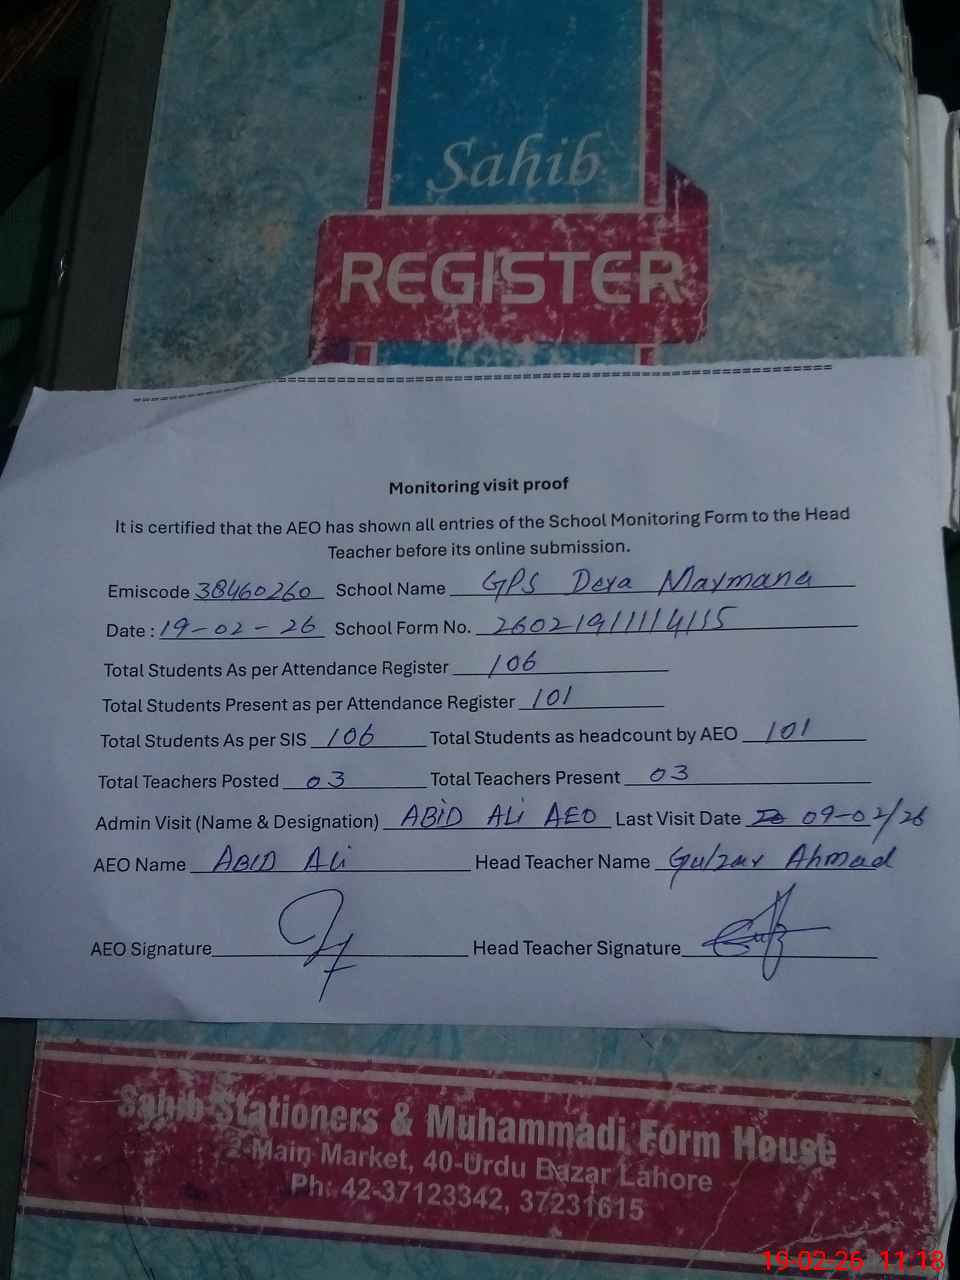 Sahib
REGISTER
Monitoring visit proof
It is certified that the AEO has shown all entries of the School Monitoring Form to the Head
Teacher before its online submission.
Emiscode 38460260 School Name GPS Dera Maymana
Date : 19-02-26 School Form No. 26021911114115
Total Students As per Attendance Register 106
Total Students Present as per Attendance Register 101
Total Students As per SIS 106 Total Students as headcount by AEO 101
Total Teachers Posted 03 Total Teachers Present 03
Admin Visit (Name & Designation) ABID ALi AEO Last Visit Date 09-02/26
AEO Name ABID ALi Head Teacher Name Gulzar Ahmad
AEO Signature Head Teacher Signature
Sahib Stationers & Muhammadi Form House
2-Main Market, 40-Urdu Bazar Lahore
Ph: 42-37123342, 37231615
19-02-26 11:18